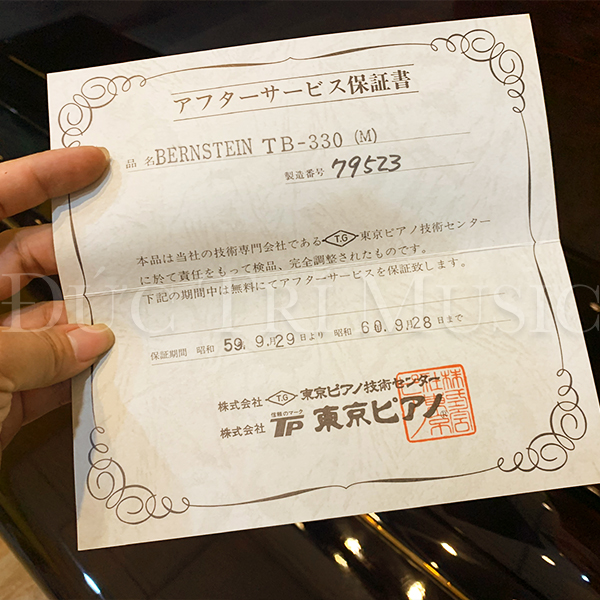 アフターサービス保証書
品名 BERNSTEIN TB-330 (M)
製造番号 79523
本品は当社の技術専門会社である T.G 東京ピアノ技術センター
に於て責任をもって検品、完全調整されたものです。
下記の期間中は無料にてアフターサービスを保証致します。
保証期間 昭和 59.9月29日より 昭和 60.9月28日まで
株式会社 T.G 東京ピアノ技術センター
信頼のマーク
株式会社 TP 東京ピアノ
DUCTRI MUSIC